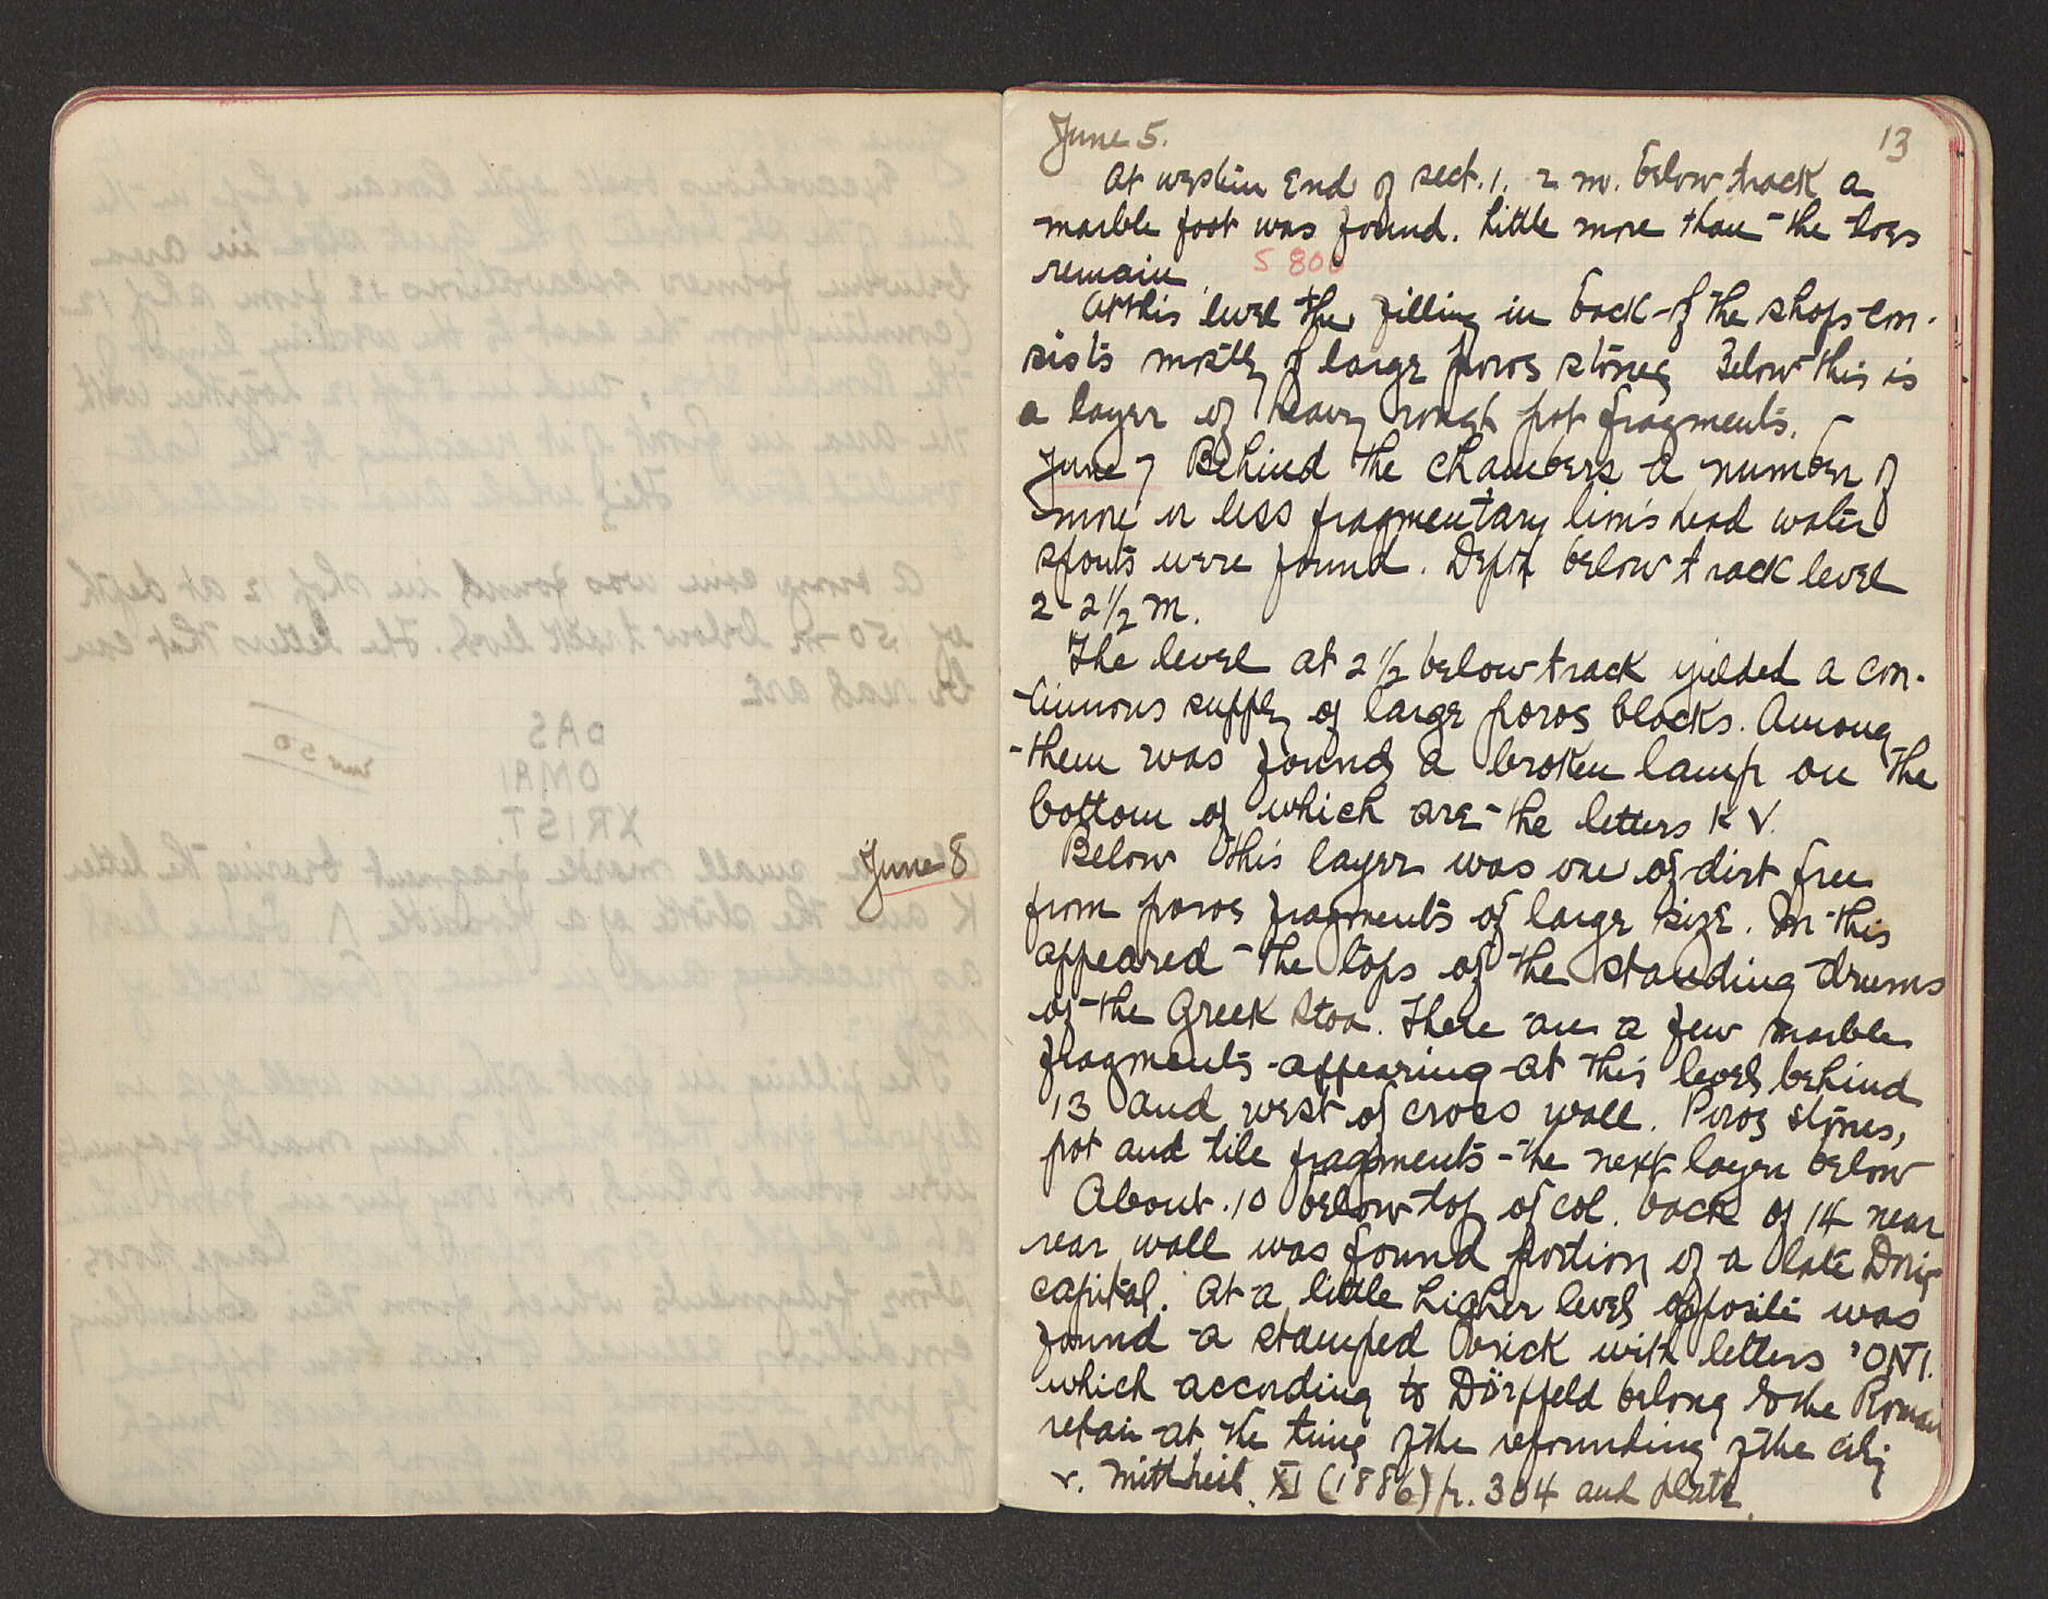 June 5.
13
At western End of sect. 1. 2 m. below track a
marble foot was found. Little more than the toes
remain.
S 800
At this level the filling in back of the shops con-
sists mostly of large poros stones Below this is
a layer of heavy rough pot fragments.
June 7 Behind the chambers a number of
more or less fragmentary lion's head water
spouts were found. Depth below track level
2-2 1/2 m.
The level at 2 1/2 below track yielded a con-
tinuous supply of large poros blocks. Among
them was found a broken lamp on the
bottom of which are the letters K V.
June 8
Below this layer was one of dirt free
from poros fragments of large size. In this
appeared the tops of the standing drums
of the Greek Stoa. There are a few marble
fragments appearing at this level behind
13 and west of cross wall. Poros stones,
pot and tile fragments the next layer below
About .10 below top of col. back of 14 near
rear wall was found portion of a late Doric
capital. At a little higher level opposite was
found a stamped brick with letters 'ONI.
which according to Dörpfeld belong to the Roman
repair at the time of the refounding of the city
v. Mittheil. XI (1886) p. 304 and plate.